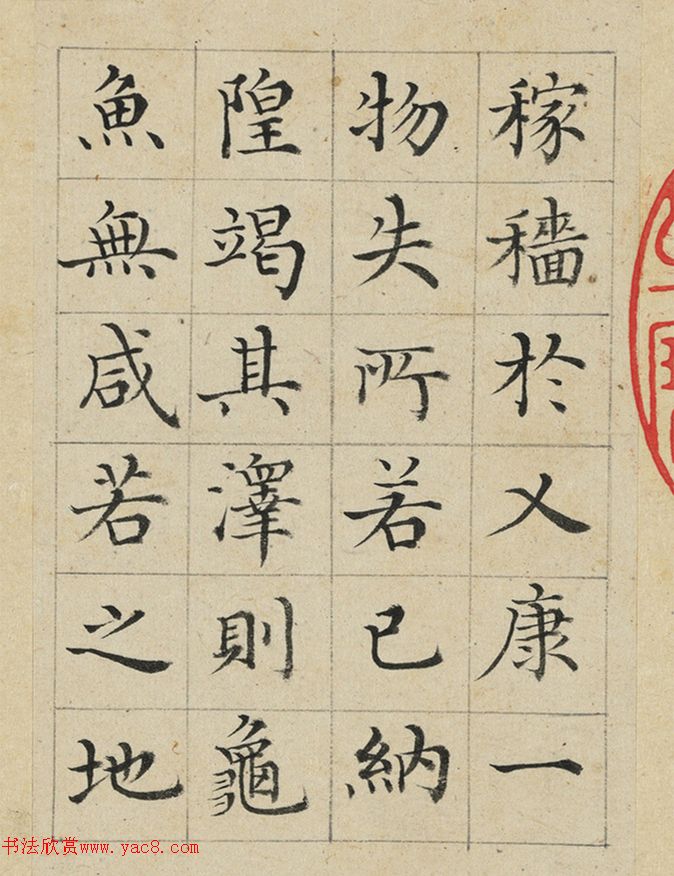 稼穡於乂康一
物失所若己納
隍竭其澤則龜
魚無咸若之地
书法欣赏www.yac8.com